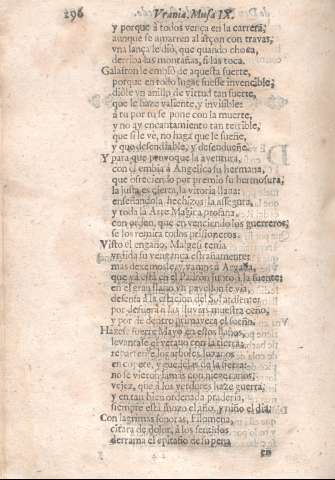 296 Vrania, Musa IX.
y porque à todos vença en la carrera,
aunque se amarren al arçon con travas,
vna lança le diò, que quando choca,
derriba las montañas, si las toca.
Galafron le embiò de aquesta suerte,
porque en todo lugar fuesse invencible;
diòle vn anillo de virtud tan fuerte,
que le haze valiente, y invisible:
à tu por tu se pone con la muerte,
y no ay encantamiento tan terrible,
que si le vè, no haga que le sueñe,
y que
Y para que provoque la aventura,
con èl embia à Angelica su hermana,
que ofreciendo por premio su hermosura,
la justa es cierta, la vitoria llana:
enseñandola hechizos la assegura,
y toda la Arte Magica profana,
con orden, que en venciendo los guerreros,
se los remita todos prisioneros.
Visto el engaño, Malgesi tenia
vrdida su vengança estrañamente:
mas dexemosle, y vamos à Argalia,
que yà està en el Padron junto à la fuente;
en el gran llano vn pavellon se via,
defensa à la estacion del Sol ardiente;
por defuera à las lluvias muestra ceño,
y por de dentro primavera el sueño.
Hazese fuerte Mayo en estos llanos,
levantale el verano con la tierra,
los arboles loçanos
en copete, y guedejas de la sierra:
no le vieron jamàs con canas
vejez, que à los verdores haze guerra,
y en tan bien ordenada pradería,
siempre està moço el año, y niño el dia.
Con lagrimas sonoras, Filomena,
citara de dolor, à los sentidos
derrama el epitafio de su pena
en